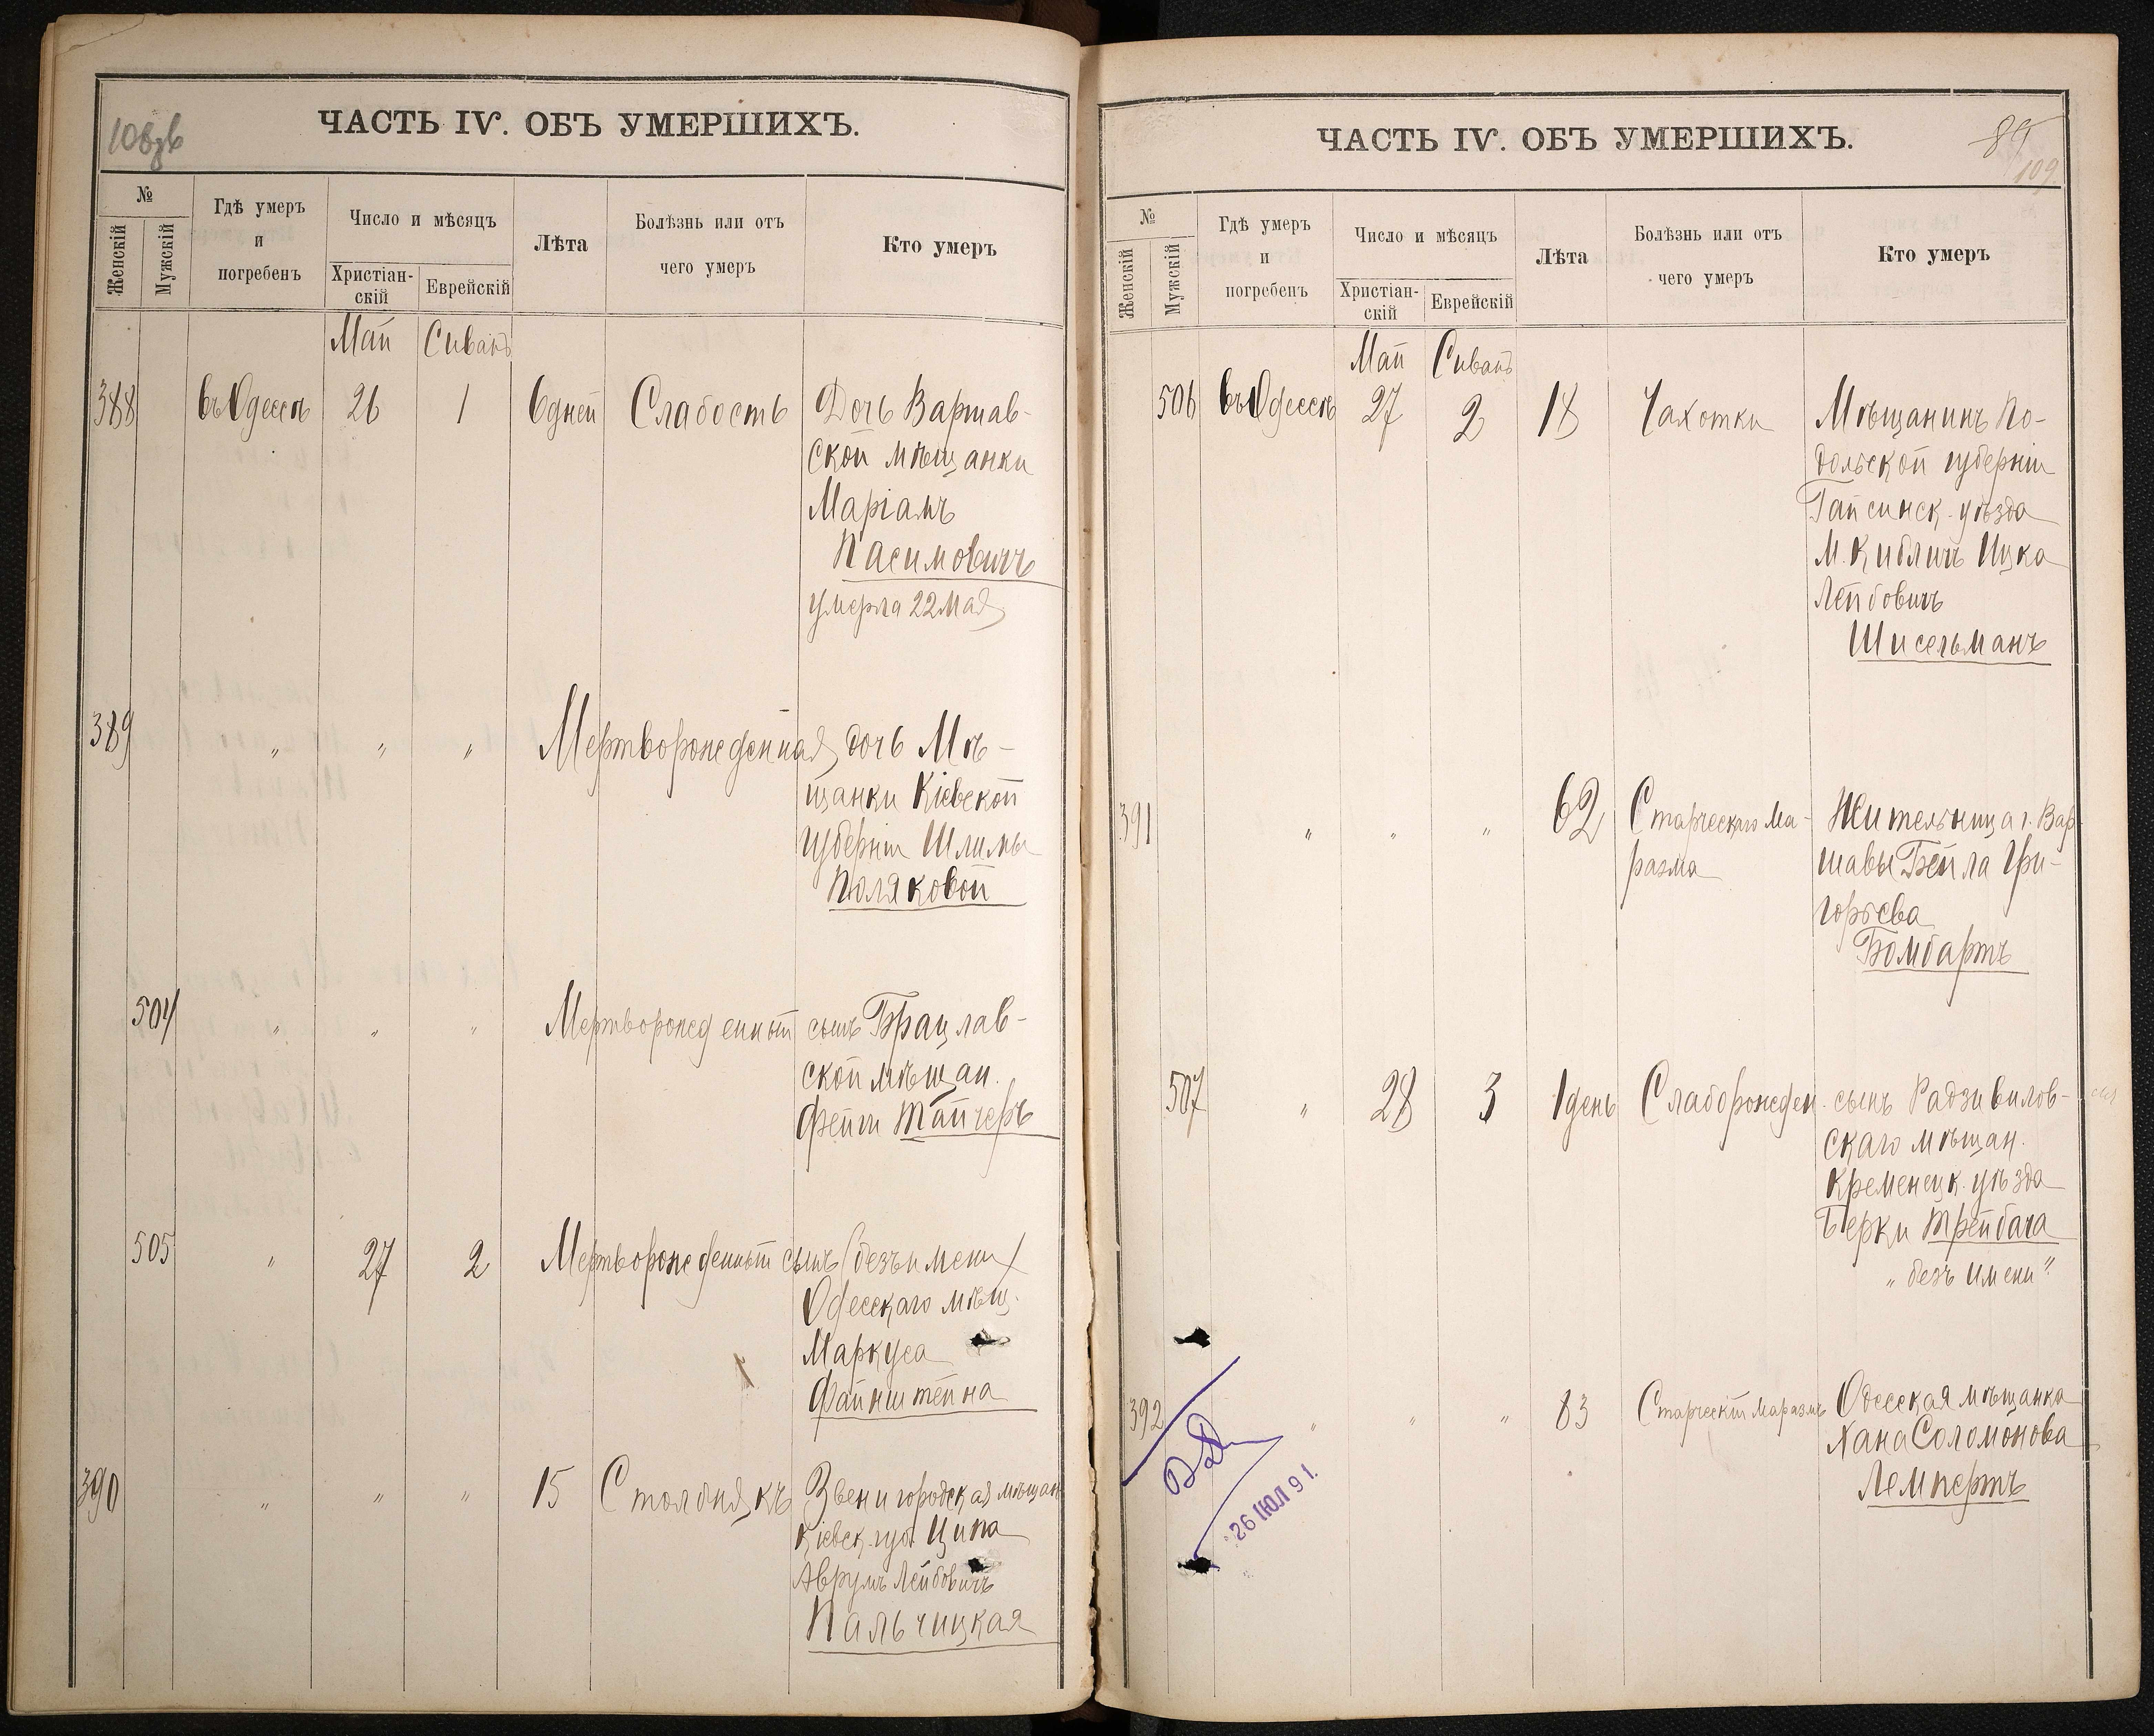 108зв
ЧАСТЬ IV. ОБЪ УМЕРШИХЪ.
№
Женскій
Мужскій
Гдѣ умеръ
и
погребенъ
Число и мѣсяцъ
Христіан-
скій
Еврейскій
Лѣта
Болѣзнь или отъ
чего умеръ
Кто умеръ
Май Сиванъ
388 въ Одессѣ 26 1 6 дней Слабость Дочь Варшав-
ской мѣщанки
Маріамъ
Пасимовичъ
умерла 22 мая
389 " " " Мертворожденная дочь Мѣ-
щанки Кіевской
губерніи Шлимы
Поляковой
504 " " " Мертворожденный сынъ Брацлав-
ской мѣщан.
Фейги Тайчеръ
505 " 27 2 Мертворожденный сынъ (безъ имени)
Одесскаго мѣщ.
Маркуса
Файнштейна
390 " " " 15 Столбнякъ Звенигородская мѣщан
Кіевск. губ. Ципа
Аврумъ Лейбовичъ
Пальчицкая
ЧАСТЬ IV. ОБЪ УМЕРШИХЪ.
89
109
№
Женскій
Мужскій
Гдѣ умеръ
и
погребенъ
Число и мѣсяцъ
Христіан-
скій
Еврейскій
Лѣта
Болѣзнь или отъ
чего умеръ
Кто умеръ
Май Сиванъ
506 въ Одессѣ 27 2 18 Чахотки Мѣщанинъ По-
дольской губерніи
Гайсинск. уѣзда
М. Кибличъ Ицка
Лейбовичъ
Шисельманъ
391 " " " 62 Старческаго Ма- Жительница г. Вар-
разма шавы Бейла Гри-
горьева
Бомбартъ
507 " 28 3 1 день Слаборожден. сынъ Радзивилов-
скаго мѣщан.
Кременецк. уѣзда
Берки Трейбача
„безъ имени“
392 " " " 83 Старческій Маразмъ Одесская мѣщанка
Хана Соломонова
Лемпертъ
26 ІЮЛ 91.